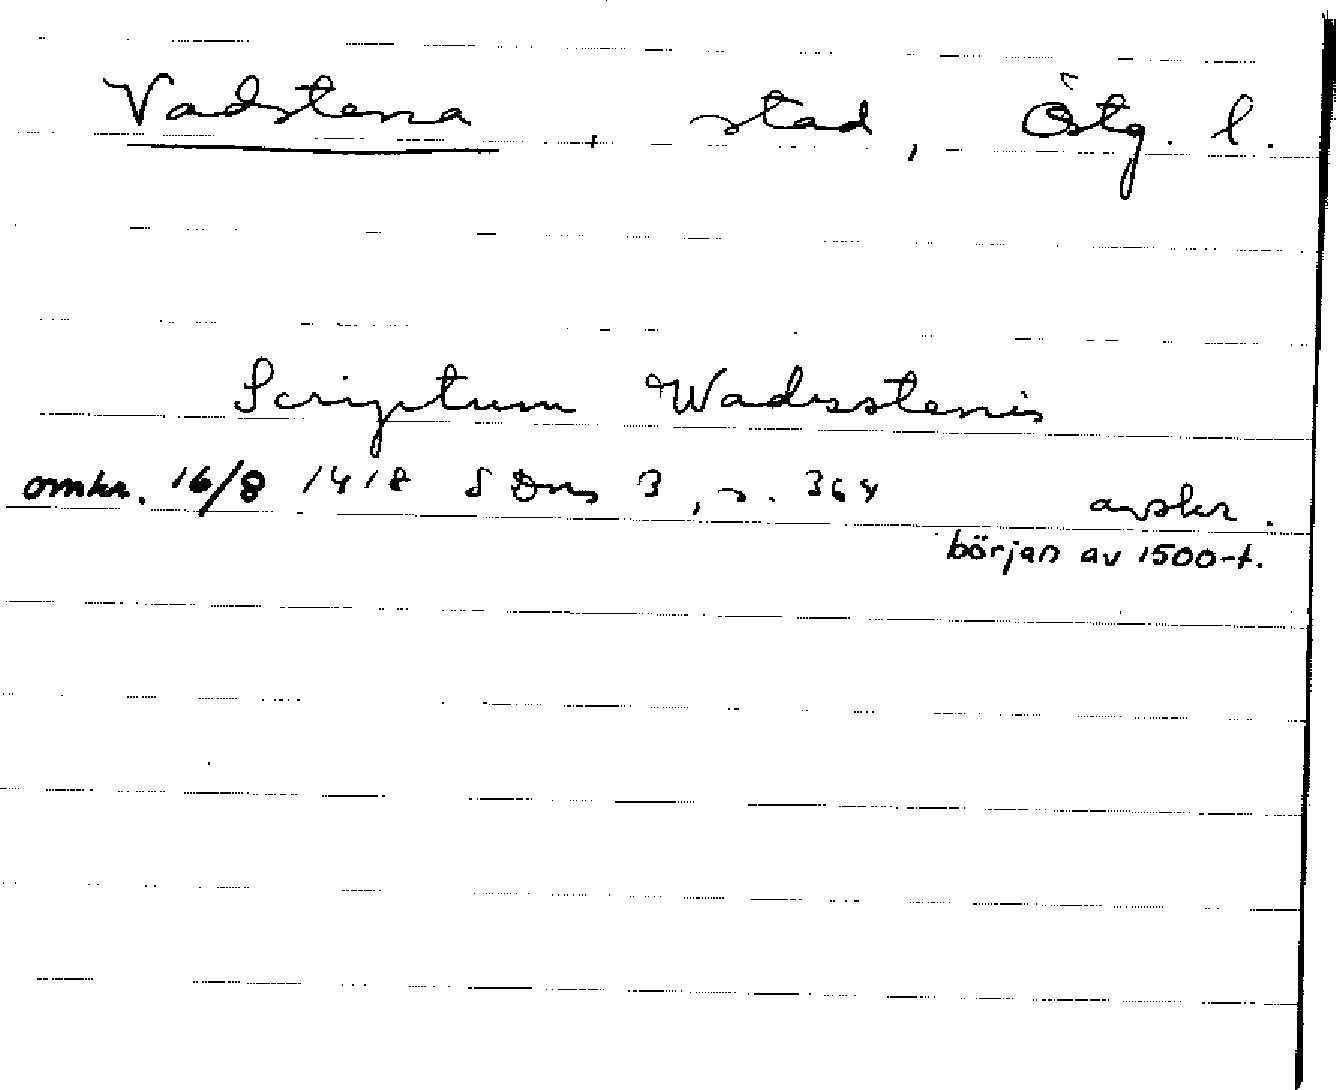 Vadstena, stad, Östg. l.
Scriptum Wadzstenis
omkr. 16/8 1418 SDns 3, s. 364 avskr.
början av 1500-t.